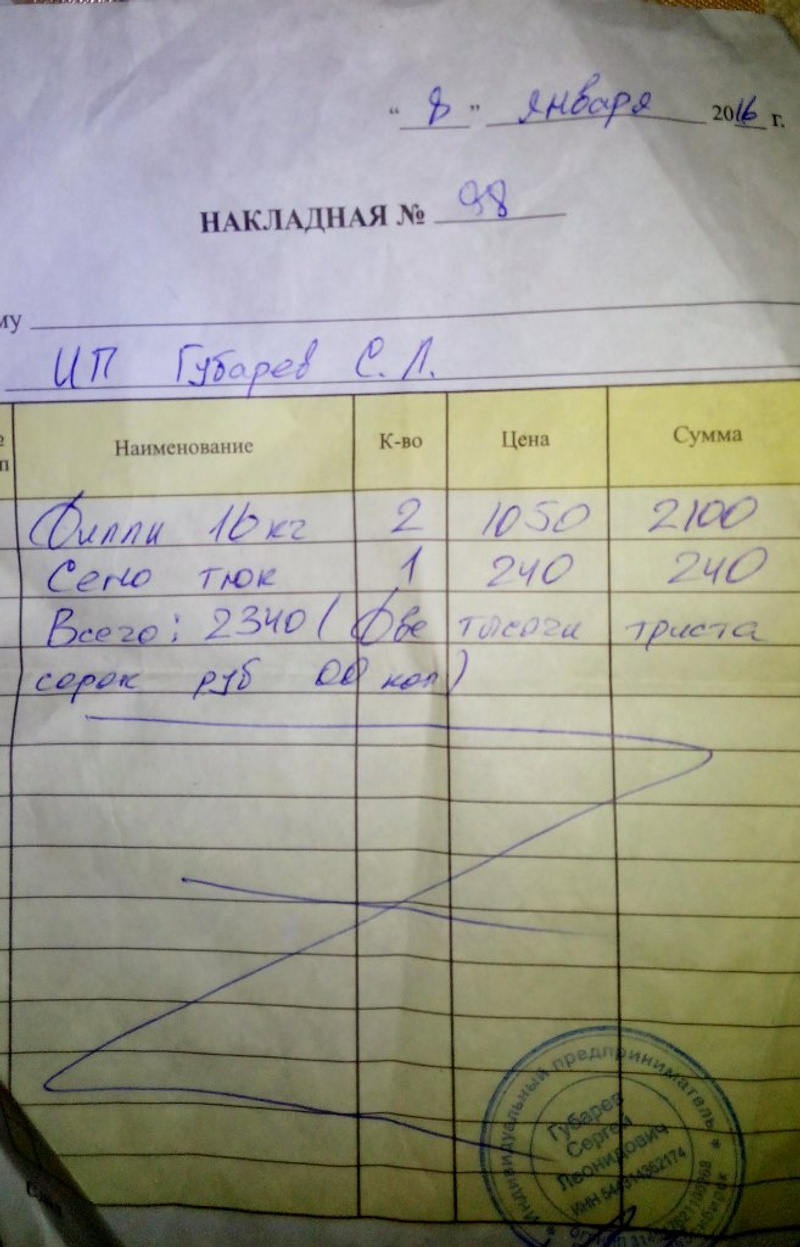 " 8 " января 2016 г.
НАКЛАДНАЯ № 98
му
ИП Губарев С. Л.
Наименование К-во Цена Сумма
Филли 16 кг 2 1050 2100
Сено тюк 1 240 240
Всего: 2340 (Две тысячи триста
сорок руб 00 коп)
Индивидуальный предприниматель
Губарев
Сергей
Леонидович